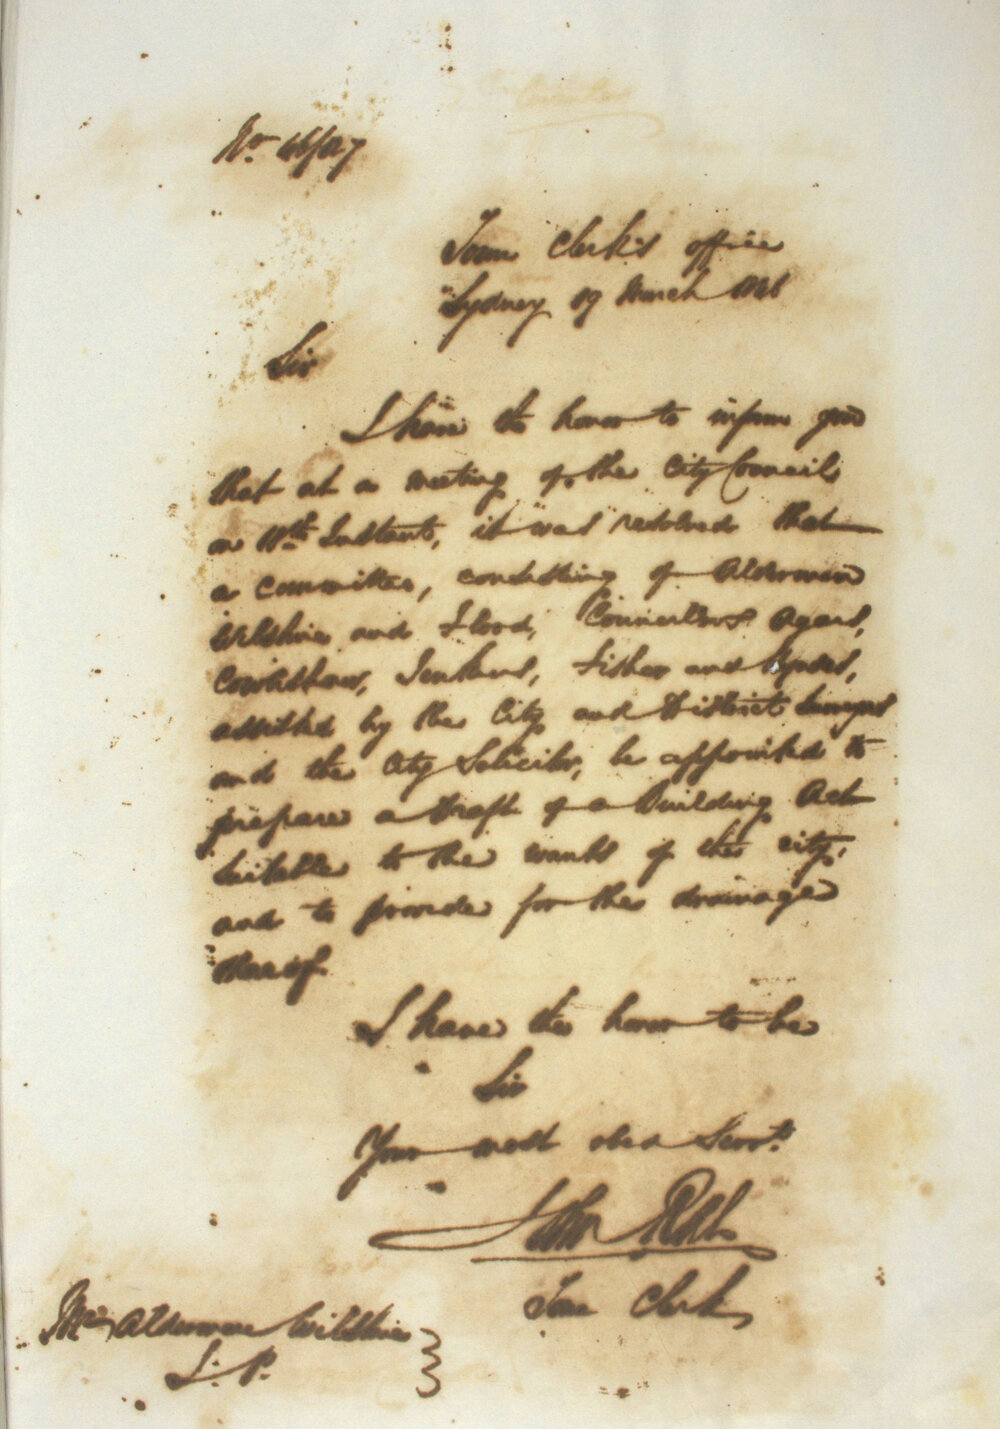 No. 46/127
Town Clerk's office
Sydney 19 March 1846
Sir
I have the honor to inform you
that at a meeting of the City Council
on 11th Instant, it was resolved that
a Committee, consisting of Aldermen
Wilshire and Flood, Councillors Agars,
Cowlishaw, Jenkins, Fisher and
assisted by the City and District Surveyors
and the City Solicitor, be appointed to
prepare a Draft of a Building Act
suitable to the wants of the city,
and to provide for the drainage
thereof.
I have the honor to be
Sir
Your most obed Servt.
John
Town Clerk
Mr Alderman Wilshire
J. P.